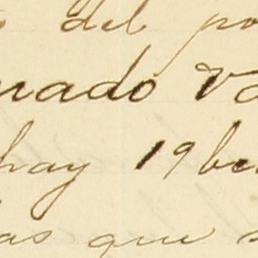 del po
nado Va
hay 19 be
as que s